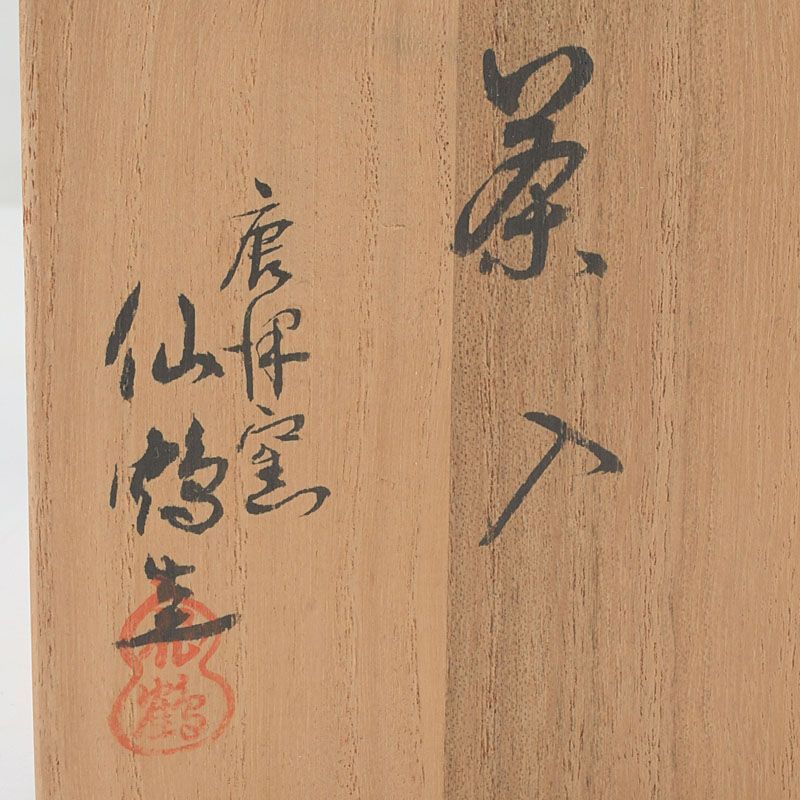 茶入
唐澤窯
仙鶴造
仙鶴